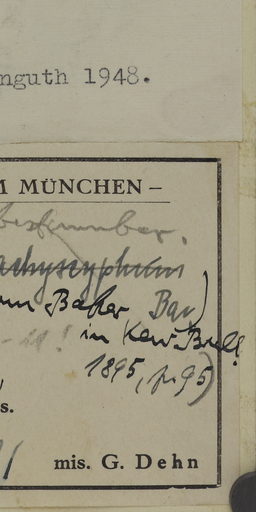 nguth 1948.
M MÜNCHEN –
bestimmbar.
achystyphium
um Baker Bar)
in Kew Bull.
1895, p. 95)
s.
mis. G. Dehn